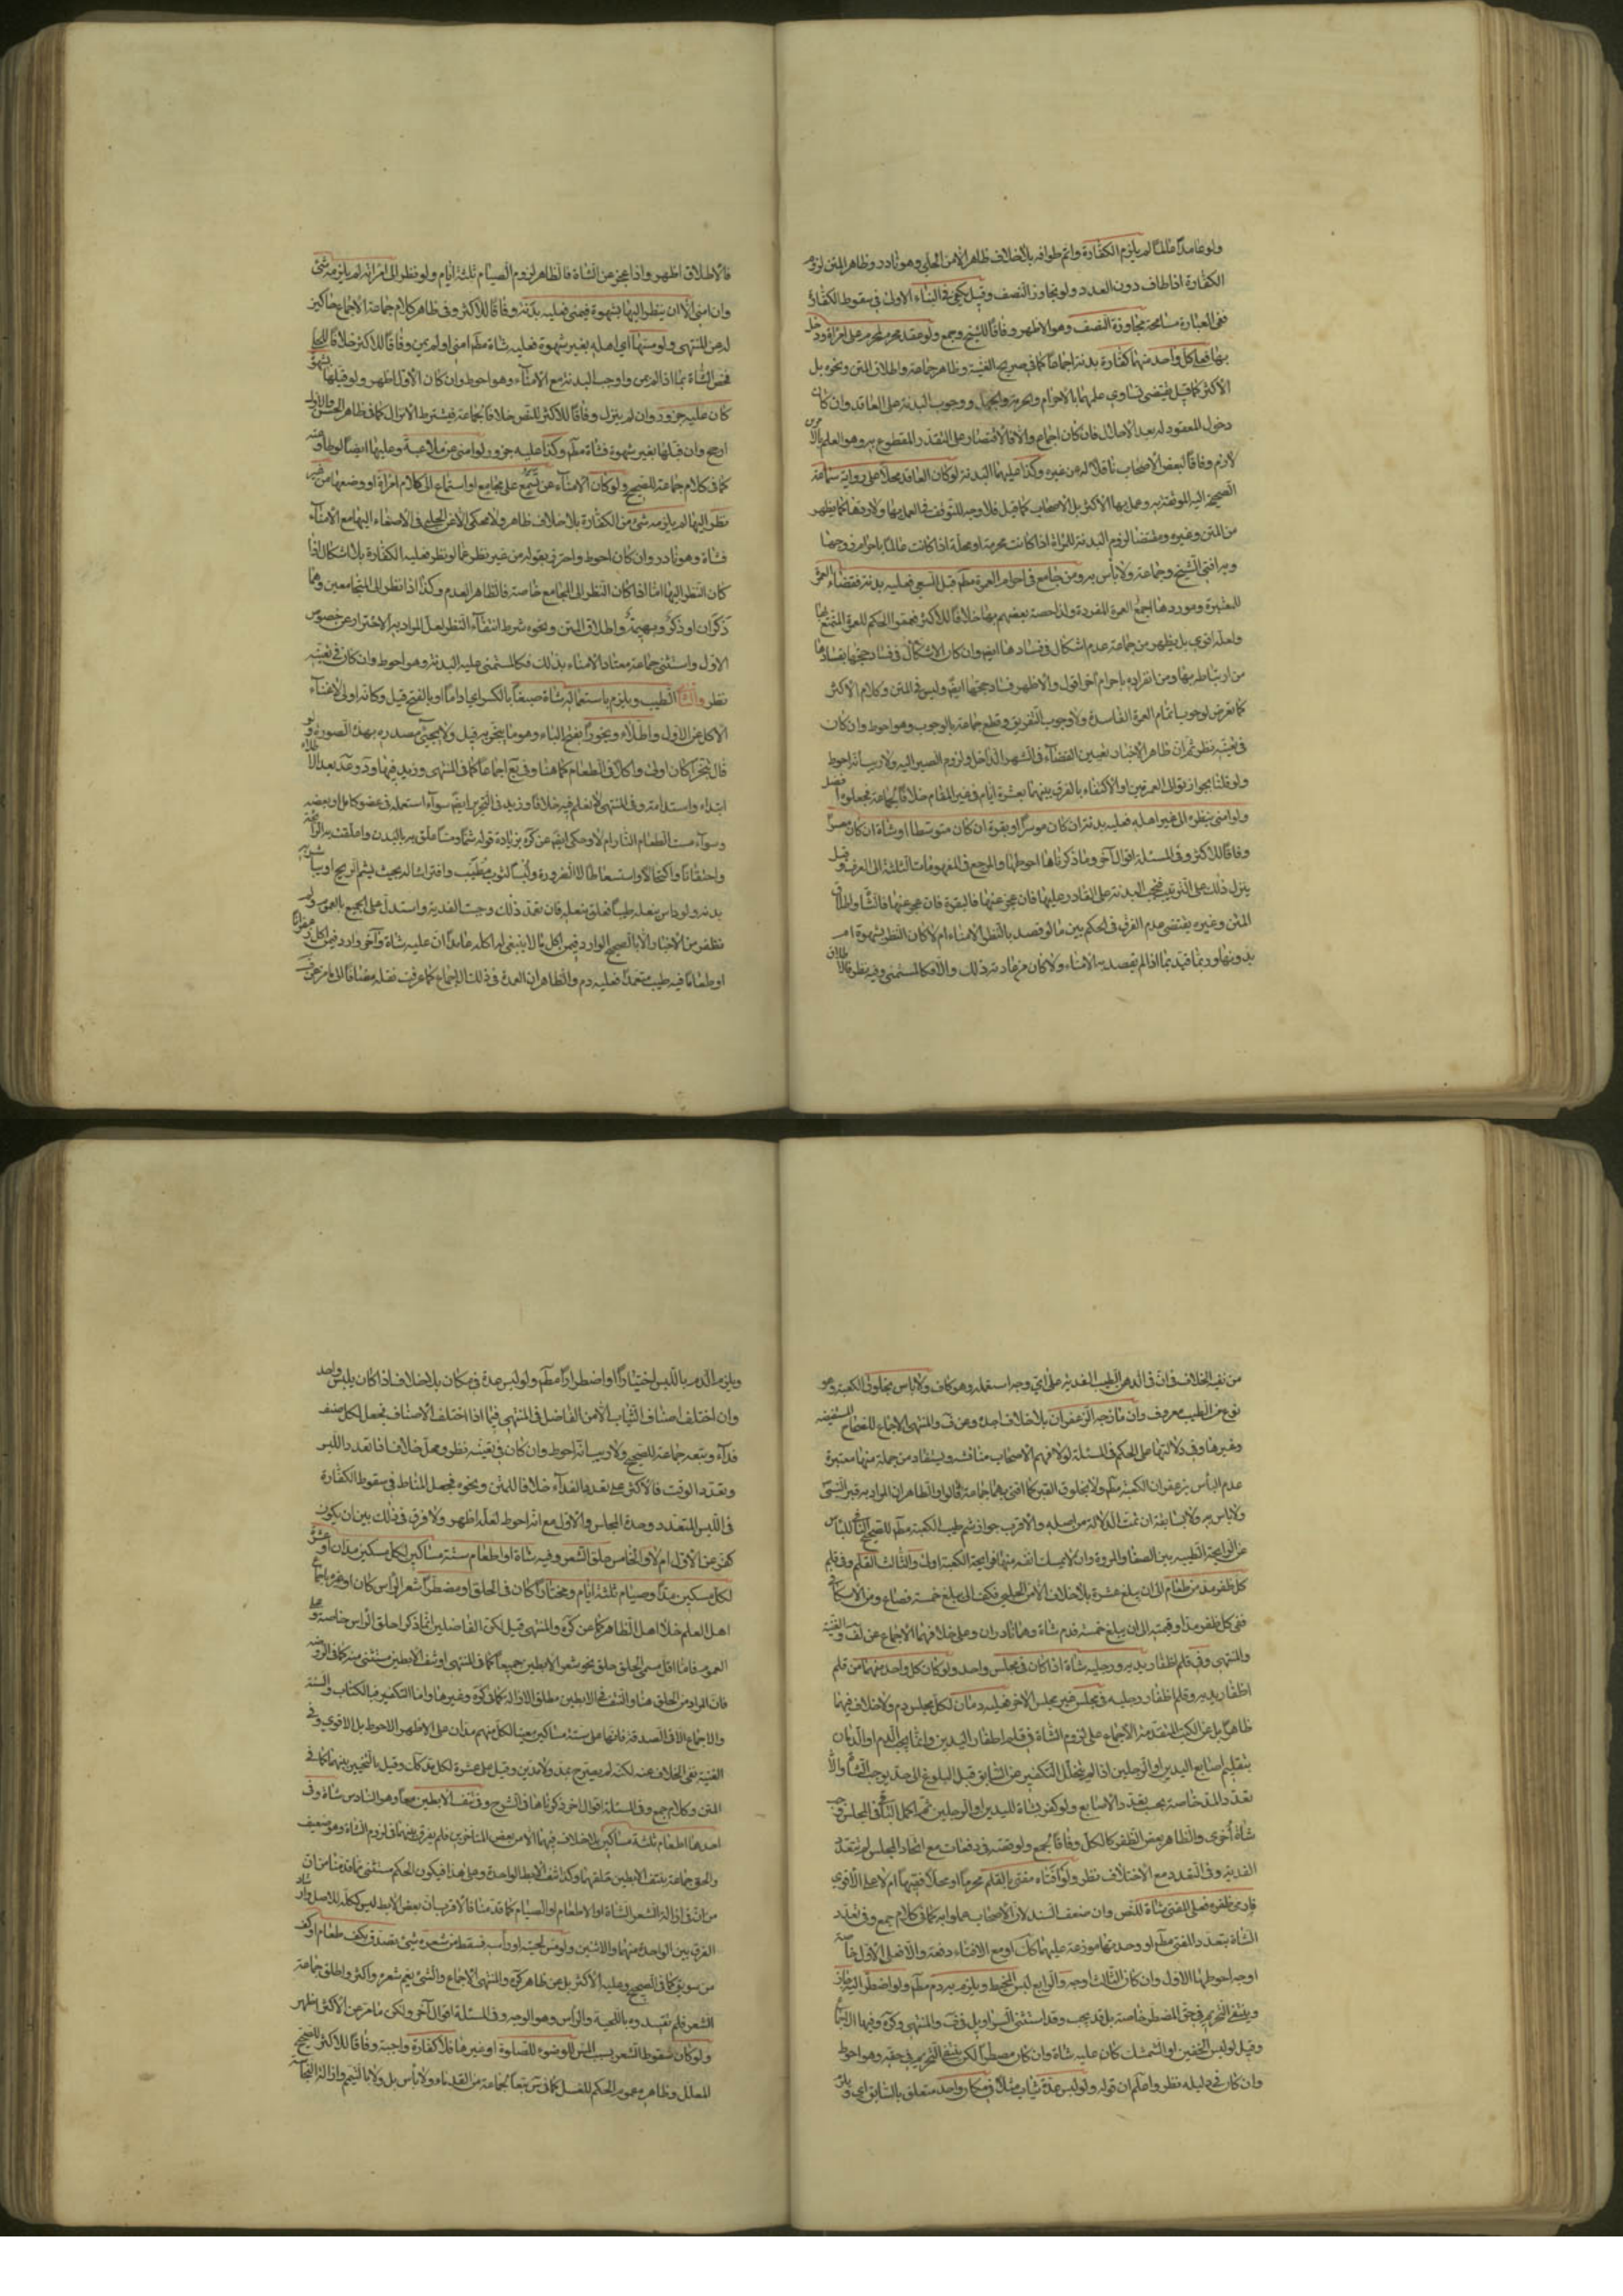 ولو عامدا عالما لم يلزم الكفارة واتم طوافه بلا خلاف ظاهر الا من الحلي وهو نادر وظاهر المتن لزوم
الكفارة اذا طاف دون العدد ولو تجاوز النصف وقيل يكفي في البناء الاولى في سقوط الكفارة
ففي العبارة مسامحة مجاوزة النصف وهو الاظهر وفاقا للشيخ وجمع ولو عقد محرم لمحرم على امراة ودخل
بها فعلى كل واحد منهما كفارة بدنة اجماعا كما في صريح الغنية وظاهر جماعة واطلاق المتن ونحوه بل
الاكثر كما قيل يقتضي تساوي علمهما بالاحرام والحرمة والجهل ووجوب البدنة على العاقد وان كان
دخول المعقود له بعد الاحلال فان كان اجماع والا فالاقتصار على المتقدر المقطوع به وهو العلم
لازم وفاقا لبعض الاصحاب ناقلا له عن غيره وكذا عليهما البدنة لو كان العاقد محلا على رواية سماعة
الصحيحة اليه الموثقة به وعمل بها الاكثر بل الاصحاب كما قيل فلا وجه للتوقف في العمل بها ولا ردها كما يظهر
من المتن وغيره ومقتضاها لزوم البدنة للمراة اذا كانت محرمة او محلة اذا كانت عالمة باحرام زوجها
وبه افتى الشيخ وجماعة ولا باس به ومن جامع في احرام العمرة مطم قبل السعي فعليه بدنة وقضاء العمرة
للمعتبرة وموردها اجمع العمرة المفردة ولذا خصه بعضهم بها خلافا للاكثر فعمموا الحكم للعمرة المتمتع بها
ولعله اقوى بل يظهر من جماعة عدم اشكال في فسادها ايضا وان كان الاشكال في فساد حجها بفسادها
من ارتباطه بها ومن انفراده باحرام آخر اقول والاظهر فساد حجها ايضا وليس في المتن وكلام الاكثر
كما تعرض لوجوب اتمام العمرة الفاسدة ولا وجوب التفريق وقطع جماعة بالوجوب وهو احوط وان كان
في تعينه نظر ثم ان ظاهر الاخبار تعيين القضاء في الشهر الداخل ولزوم الصبر اليه ولا ريب انه احوط
ولو قلنا بجواز توالي العمرتين او الاكتفاء بالفرق بينهما بعشرة ايام في غير المقام خلافا لجماعة فجعلوه افضل
ولو امنى بنظره الى غير اهله فعليه بدنة ان كان موسرا او بقرة ان كان متوسطا او شاة ان كان معسرا
وفاقا للاكثر وفي المسئلة اقوال آخر وما ذكرناها احوطها والمرجع في المفهومات الثلثة الى العرف وقيل
ينزل ذلك على الترتيب فتجب البدنة على القادر عليها فان عجز عنها فالبقرة فان عجز عنها فالشاة واطلاق
المتن وغيره يقتضي عدم الفرق في الحكم بين ما لو قصد بالنظر الامناء ام لا كان النظر بشهوة ام
بدونها وربما قيد بما اذا لم يقصد به الامناء ولا كان من عادته ذلك والا فكالمستمني وفيه نظر
فالاطلاق اظهر واذا عجز عن الشاة فالظاهر لزوم الصيام ثلثة ايام ولو نظر الى امراته لم يلزمه شئ
وان امنى الا ان ينظر اليها بشهوة فيمنى فعليه بدنة وفاقا للاكثر وفي ظاهر كلام جماعة الاجماع حاكين
له عن المنتهى ولو مسها اي اهله بغير شهوة فعليه شاة مطم امنى او لم يمن وفاقا للاكثر خلافا للحلي
فخص الشاة بما اذا لم يمن واوجب البدنة مع الامناء وهو احوط وان كان الاول اظهر ولو قبلها بشهوة
كان عليه جزور وان لم ينزل وفاقا للاكثر للنص خلافا لجماعة فيشترط الانزال كما في ظاهر الحسن والاول
ارجح وان قبلها بغير شهوة فشاة مطم وكذا عليه جزور لو امنى عن ملاعبة وعليها ايضا لو طاوعته
كما في كلام جماعة للصحيح ولو كان الامناء عن تسمع على مجامع او استماع الى كلام امراة او وصفها من غير
نظر اليها لم يلزمه شئ من الكفارة بلا خلاف ظاهر ولا محكى الا عن الحلبي في الاصغاء اليها مع الامناء
فشاة وهو نادر وان كان احوط واحترز بقوله من غير نظر عما لو نظر فعليه الكفارة بلا اشكال اذا
كان النظر اليها اما اذا كان النظر الى المجامع خاصة فالظاهر العدم وكذا اذا نظر الى المتجامعين وهما
ذكران او ذكر وبهيمة واطلاق المتن ونحوه شرط انتفاء النظر لعل المراد به الاحتراز عن خصوص
الاول واستثنى جماعة معتاد الامناء بذلك فكالمستمني عليه البدنة وهو احوط وان كان في تعينه
نظر والثاني الطيب ويلزم باستعماله شاة صبغا بالكسر اي اداما او بالفتح قيل وكانه اولى لاغناء
الاكل عن الاول واطلاء وبخورا بفتح الباء وهو ما يتبخر به قيل ولا يجئ مصدره بهذه الصورة ولو
قال تبخرا كان اولى واكلا في الطعام كما هنا وفي يع اجماعا كما في المنتهى وزيد فيهما
ابتداء واستدامة وفي المنتهى لا نعلم فيه خلافا وزيد في التحرير ايضا سواء استعمله في عضو كامل او بعضه
وسواء مست الطعام النار ام لا وحكى ايضا عن كره بزيادة قوله شما ومسا علق به بالبدن
واحتقانا واكتحالا واستعاطا لا لضرورة ولبسا لثوب مطيب وافتراشا له بحيث يشم الريح او يباشر
بدنه ولو داس بنعله طيبا فعلق بنعله فان تعمد ذلك وجبت الفدية واستدل على الجميع بالعموم ولم
نظفر من الاخبار الا بالصحيح الوارد فيمن اكل ما لا ينبغي له اكله عامدا ان عليه شاة وآخر وارد فيمن اكل زعفرانا
او طعاما فيه طيب متعمدا فعليه دم والظاهر ان العمدة في ذلك الاجماع كما عرفت نقله مضافا الى ما مر عن
من نفي الخلاف في ان في الدهن الطيب الفدية على اي وجه استعمله وهو كاف ولا باس بخلوق الكعبة وهو
نوع من الطيب معروف وان مازجه الزعفران بلا خلاف اجده وعن ف والمنتهى الاجماع للصحاح المستفيضة
وغيرها وفي دلالتها على الحكم في المسئلة لولا فهم الاصحاب مناقشة ويستفاد من جملة منها معتبرة
عدم الباس بزعفران الكعبة مطم ولا بخلوق القبر كما افتى بهما جماعة قالوا والظاهر ان المراد به قبر النبي
ولا باس به ولا بسابقة ان تمت الدلالة من اصله والاقرب جواز شم طيب الكعبة مطم للصحيح النافي للباس
عن الرايحة الطيبة بين الصفا والمروة وان لا يمسك انفه منها فرايحة الكعبة اولى والثالث القلم وفي قلم
كل ظفر مد من طعام الى ان يبلغ عشرة بلا خلاف الا من الحلبي فكف الى يبلغ خمسة فصاع ومن الاسكافي
ففي كل ظفر مد او قيمته الى ان يبلغ خمسة فدم شاة وهما نادران وعلى خلافهما الاجماع عن ف والغنية
والمنتهى وفي قلم اظفار يديه ورجليه شاة اذا كان في مجلس واحد ولو كان كل واحد منهما من قلم
اظفار يديه وقلم اظفار رجليه في مجلس غير مجلس الاخر فعليه دمان لكل مجلس دم ولا خلاف فيهما
ظاهرا بل عن الكتب المتقدمة الاجماع على لزوم الشاة في قلم اظفار اليدين وانما يجب الدم او الدمان
بتقليم اصابع اليدين او الرجلين اذا لم يتخلل التكفير عن السابق قبل البلوغ الى حد يوجب الشاة والا
تعدد المد خاصة بحسب تعدد الاصابع ولو كفر بشاة لليدين او الرجلين ثم اكمل الباقي في المجلس وجب
شاة اخرى والظاهر بعض الظفر كالكل وفاقا لجمع ولو قصه في دفعات مع اتحاد المجلس لم يتعدد
الفدية وفي التعدد مع الاختلاف نظر ولو افتاه مفتى بالقلم محرما او محلا فقيها ام لا على الاقوى
فادمى ظفره فعلى المفتي شاة للنص وان ضعف السند لان الاصحاب عملوا به كما في كلام جمع وفي تعدد
الشاة بتعدد المفتي مطم او وحدتها موزعة عليهما كك او مع الافتاء دفعة والا فعلى الاول خاصة
اوجه احوطها الاول وان كان الثالث اوجه والرابع لبس المخيط ويلزمه به دم مطم ولو اضطر اليه جاز
وينتفي التحريم في حق المضطر خاصة بل قد يجب وقد استثنى السراويل في ف والمنتهى وكره وفيها الاجماع
وقيل لو لبس الخفين او الشمشك كان عليه شاة وان كان مضطرا لكن ينتفي التحريم في حقه وهو احوط
وان كان في دليله نظر واعلم ان قوله ولو لبس عدة ثياب مثلا في مكان واحد متعلق بالسابق اي ولو
ويلزم الدم باللبس اختيارا او اضطرارا مطم ولو لبس عدة في مكان بلا خلاف اذا كان بلبس واحد
وان اختلف اصناف الثياب الا من الفاضل في المنتهى فيما اذا اختلف الاصناف فجعل لكل صنف
فداء وتبعه جماعة للصحيح ولا ريب انه احوط وان كان في تعينه نظر ومحل خلاف اذا تعدد اللبس
وتعدد الوقت فالاكثر على تعدد الفداء خلافا للمتن ونحوه فجعل المناط في سقوط الكفارة
في اللبس المتعدد وحدة المجلس والاول مع انه احوط لعله اظهر ولا فرق في ذلك بين ان يكون
كفر عن الاول ام لا والخامس حلق الشعر وفيه شاة او اطعام ستة مساكين لكل مسكين مدان او عشرة
لكل مسكين مد او صيام ثلثة ايام ومختارا كان في الحلق او مضطرا شعر الراس كان او غيره باجماع
اهل العلم خلا اهل الظاهر كما عن كره والمنتهى قيل لكن الفاضلين انما ذكرا حلق الراس خاصة
العموم فاما اقل مسمى الحلق حلق نحو شعر الابطين جميعا كما في المنتهى او نتف الابطين مستثنى منه كما في الروضة
فان المراد من الحلق هنا والنتف في الابطين مطلق الازالة كما في كره وغيرها واما التكفير فبالكتاب والسنة
والاجماع الا في الصدقة فانها على ستة مساكين عينا لكل منهم مدان على الاظهر الاحوط بل الاقوى وفي
الغنية نفي الخلاف عنه لكنه لم يصرح بمد ولا مدين وقيل على عشرة لكل مد كك وقيل بالتخيير بينهما كما في
المتن وكلام جمع وفي المسئلة اقوال اخر ذكرناها في الشرح وفي نتف الابطين معا وهو السادس شاة وفي
احدهما اطعام ثلثة مساكين بلا خلاف فيهما الا من بعض المتاخرين فلم يفرق بينهما في لزوم الشاة وهو ضعيف
والحق جماعة بنتف الابطين حلقهما وكذا نتف الابط الواحدة وعلى هذا فيكون الحكم مستثنى مما قدمنا من ان
من ان في ازالة الشعر الشاة او الاطعام او الصيام كما قدمنا فالاقرب ان بعض الابط ليس ككله للاصل واراد
الفرق بين الواحدة منهما والاثنين ولو مس لحيته او راسه فسقط من شعره شئ تصدق بكف طعام او كف
من سويق كما في الصحيح وعليه الاكثر بل عن ظاهر كره والمنتهى الاجماع والشئ يعم شعرة واكثر واطلق جماعة
الشعر فلم نقيده وباللحية والراس وهو الوجه وفي المسئلة اقوال آخر ولكن ما مر عن الاكثر اظهر
ولو كان سقوط الشعر بسبب المس للوضوء للصلوة او غيرها فلا كفارة واجبة وفاقا للاكثر للصحيح
المعلل وظاهره عموم الحكم للغسل كما في س تبعا لجماعة من القدماء ولا باس بل ولا بالتيمم وازالة النجاسة